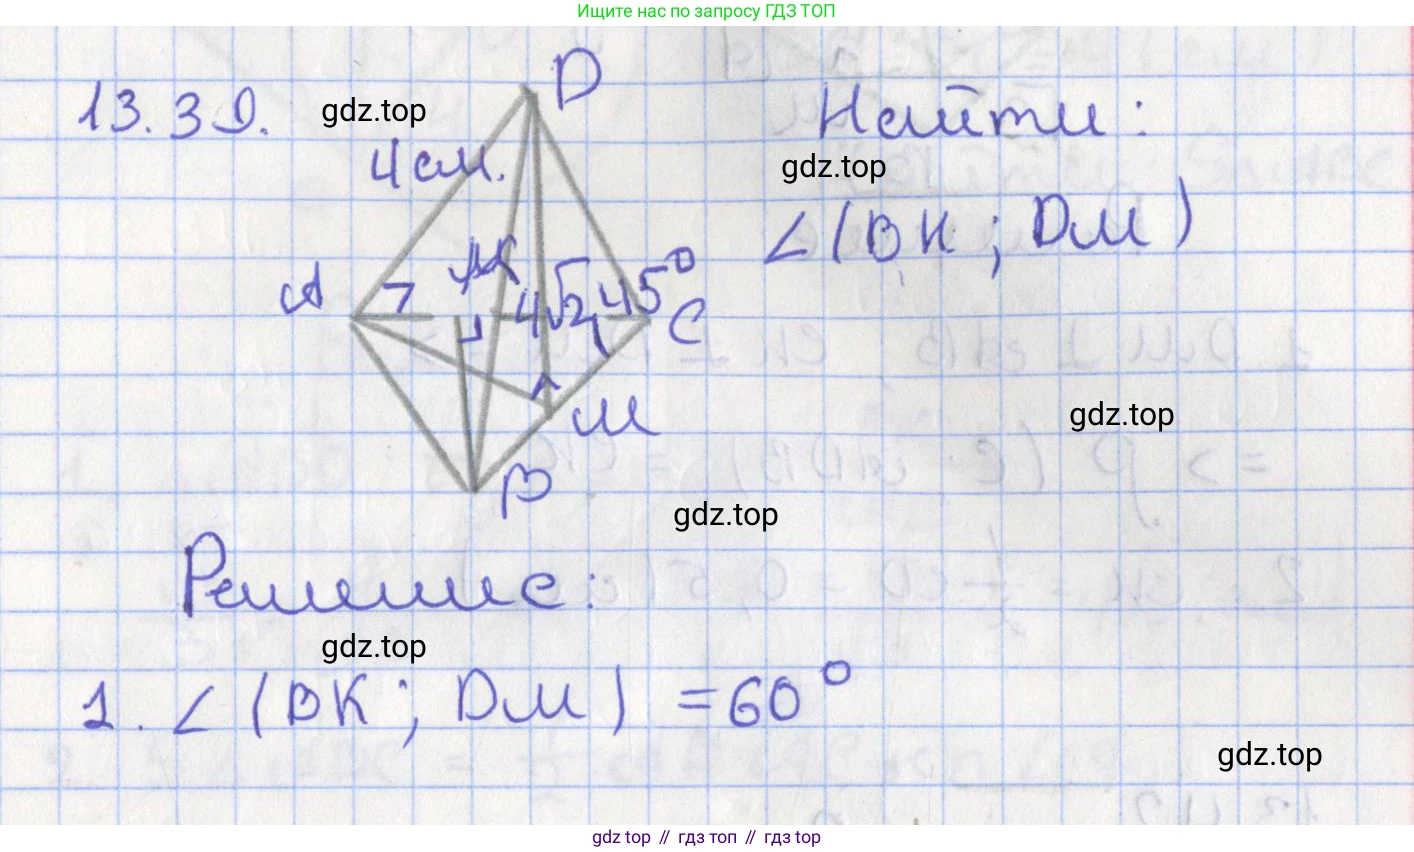 Ищите нас по запросу ГДЗ ТОП
13.39.
gdz.top
D
Найти:
4 см.
gdz.top
∠(BK; DM)
A
K
4√2
45°
C
M
gdz.top
B
gdz.top
Решение:
gdz.top
1. ∠(BK; DM) = 60°
gdz.top
gdz top // гдз топ // gdz top